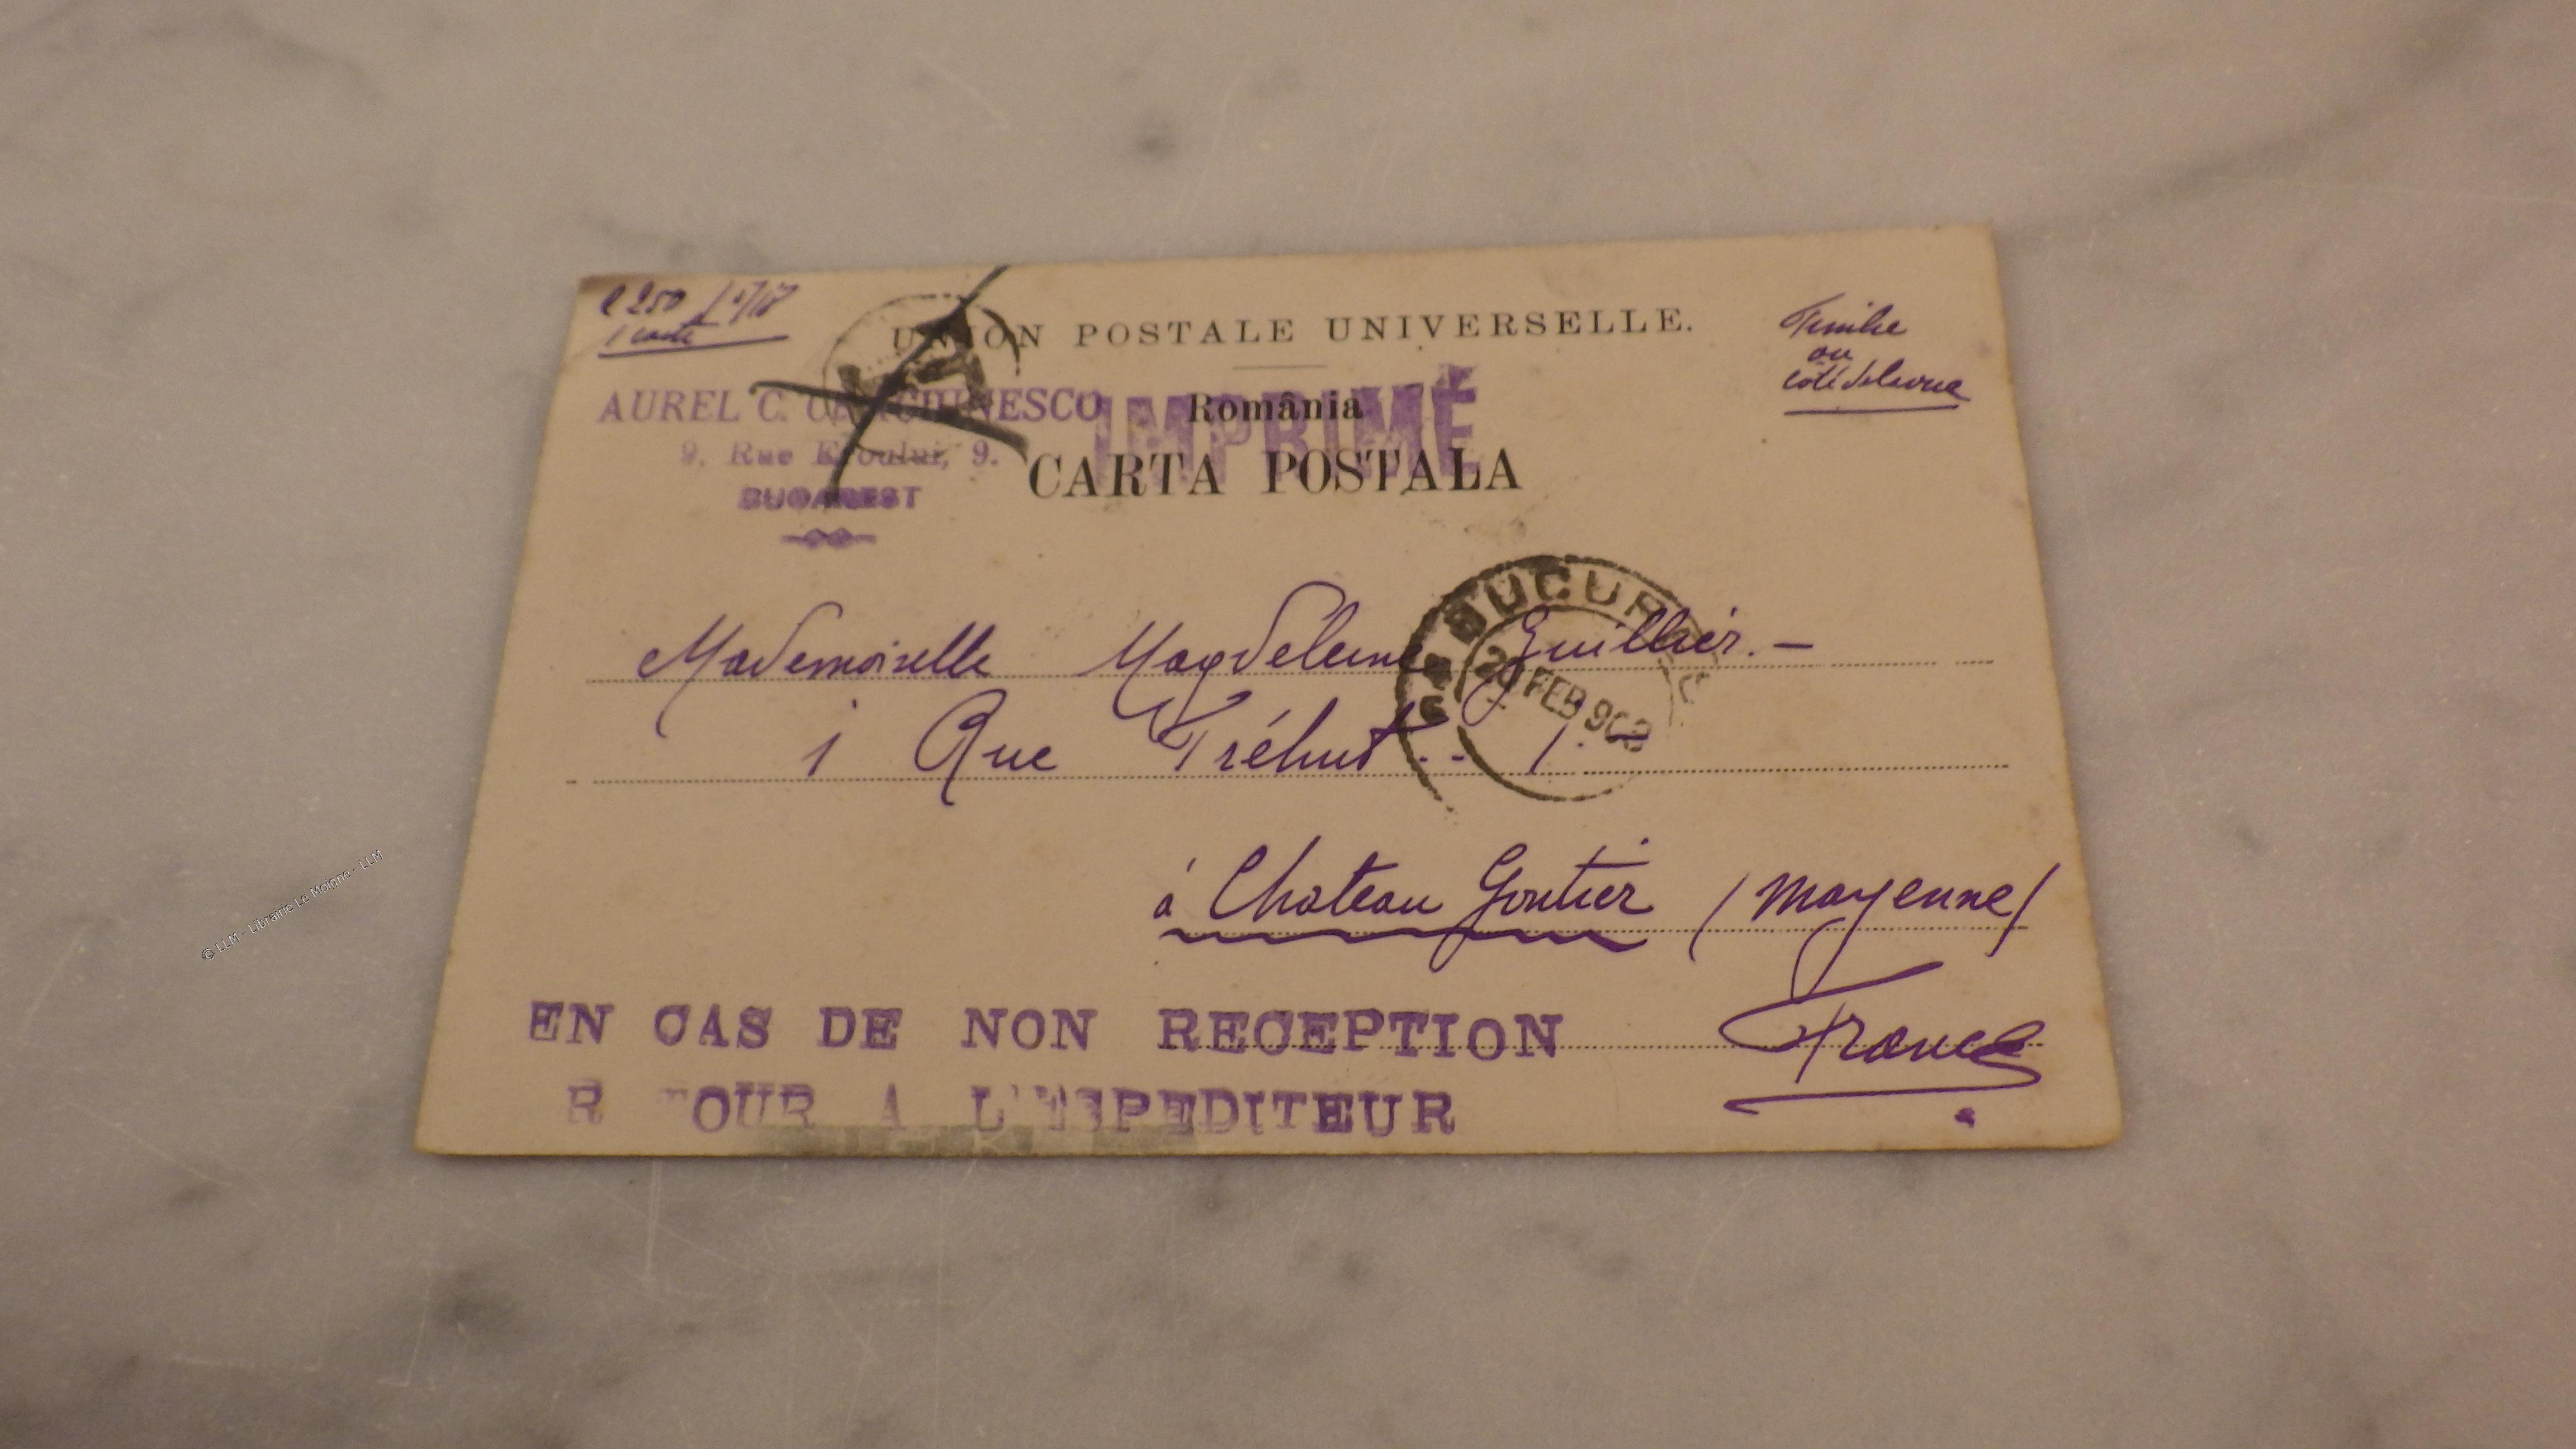 1 carte
UNION POSTALE UNIVERSELLE.
Timbre
ou
côté de la vue
AUREL C.
IMPRIMÉ
România
9, Rue 9.
CARTA POSTALA
BUCAREST
BUCUR
FEB 90
Mademoiselle Magdeleine Guillier. –
1 Rue Tréhut .. 1.
à Chateau Gontier (Mayenne)
France
EN CAS DE NON RECEPTION
R TOUR A L'ESPEDITEUR
© LLM - Librairie Le Moigne - LLM